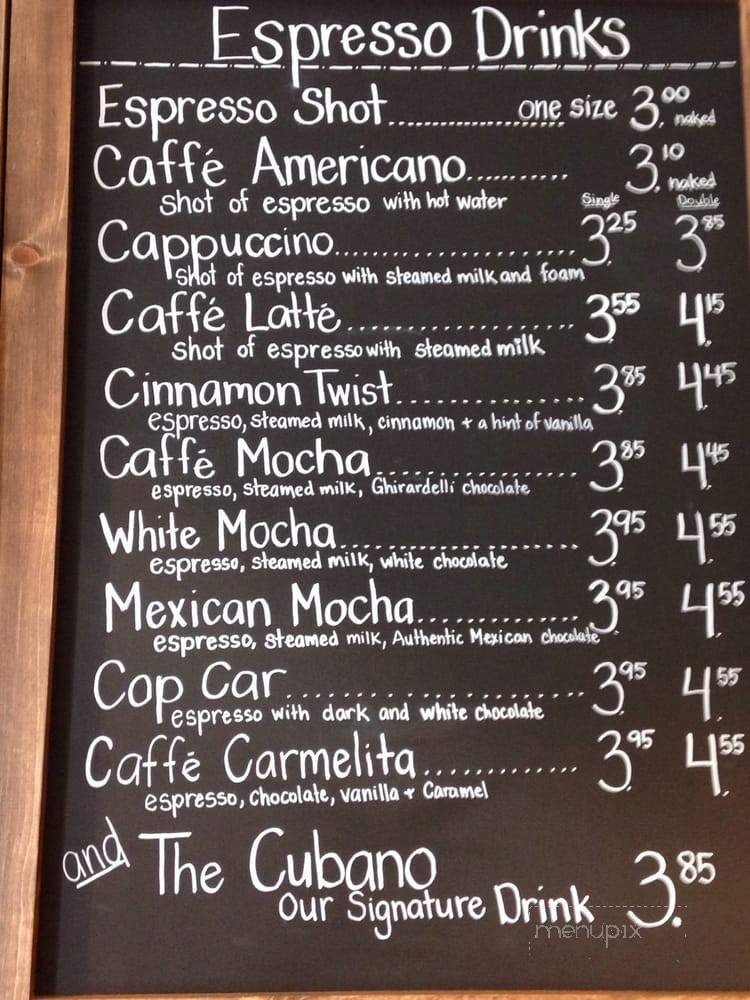 Espresso Drinks
Espresso Shot.................... one size 3.00 naked
Caffé Americano.......... 3.10 naked
Shot of espresso with hot water Single Double
Cappuccino........................ 3.25 3.85
Shot of espresso with steamed milk and foam
Caffé Latté...................... 3.55 4.15
Shot of espresso with steamed milk
Cinnamon Twist................. 3.85 4.45
espresso, steamed milk, cinnamon + a hint of vanilla
Caffé Mocha.................... 3.85 4.45
espresso, steamed milk, Ghirardelli chocolate
White Mocha........................ 3.95 4.55
espresso, steamed milk, white chocolate
Mexican Mocha............... 3.95 4.55
espresso, steamed milk, Authentic Mexican chocolate
Cop Car......................... 3.95 4.55
espresso with dark and white chocolate
Caffé Carmelita............. 3.95 4.55
espresso, chocolate, vanilla + Caramel
and The Cubano 3.85
Our Signature Drink
menupix